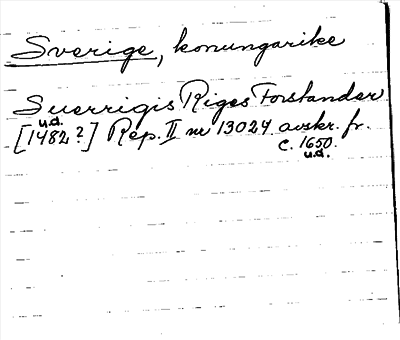 Sverige, konungarike
Suerrigis Riges Forstander
u.d.
[1482?] Rep. II nr 13024 avskr. fr.
c. 1650.
u.d.